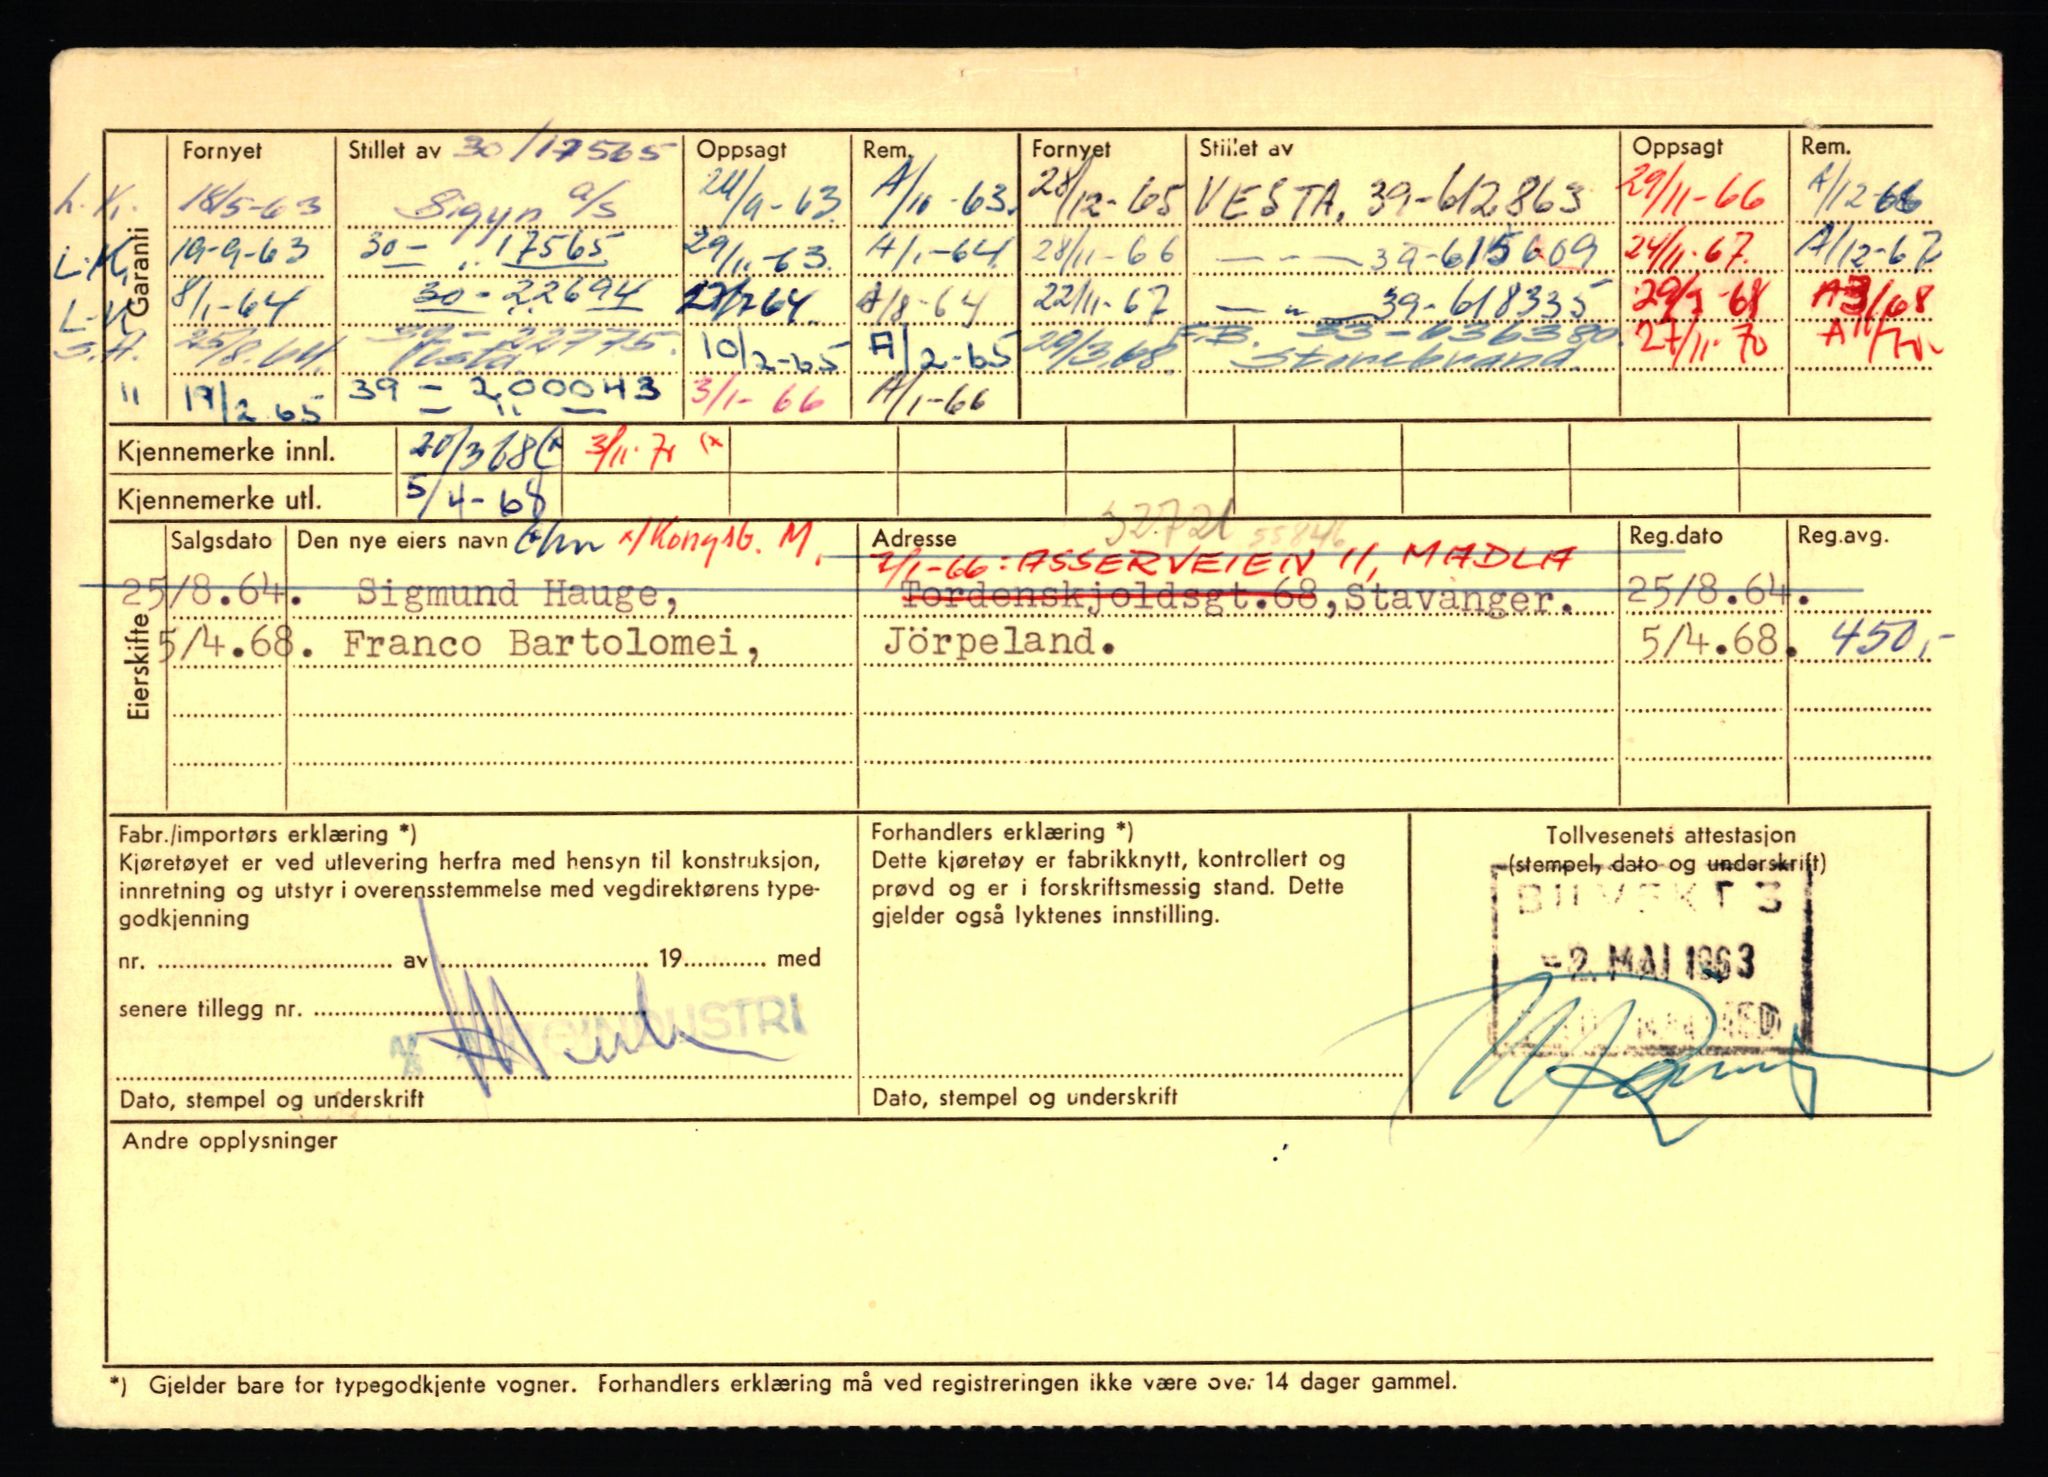 Garanti
Fornyet Stillet av 30/17565 Oppsagt Rem. Fornyet Stillet av Oppsagt Rem.
L.K. 18/5-63 Sigyn a/s 24/9-63 A/11-63. 28/12-65 VESTA. 39-612863 29/11-66 A/12-66
L.K. 19-9-63 30- " 17565 29/11-63. A/1-64. 28/11-66 — " — 39-615609 24/11-67. A/12-67
L.K 8/1-64 30-22694 23/7 64. A/8-64 22/11-67 — " — 39-618335 29/3-68 A3/68
S.H. 25/8.64. 39-22775. Vesta 10/2-65 A/2-65 29/3.68. S.B. 33-636380. Storebrand. 27/11.70 A 11/70.
" 17/2 65 39-200043 — " — 3/1-66 A/1-66
Kjennemerke innl. 20/3 68 (x 3/11.70 (x
Kjennemerke utl. 5/4-68
Eierskifte
Salgsdato Den nye eiers navn x/Kongsb. M. Adresse 52721 55846 Reg.dato Reg.avg.
7/1-66: ASSERVEIEN 11, MADLA
25/8.64. Sigmund Hauge, Tordenskjoldsgt.68, Stavanger. 25/8.64.
5/4.68. Franco Bartolomei, Jörpeland. 5/4.68. 450,-
Fabr./importørs erklæring *)
Kjøretøyet er ved utlevering herfra med hensyn til konstruksjon,
innretning og utstyr i overensstemmelse med vegdirektørens type-
godkjenning
nr. av 19 med
senere tillegg nr.
INDUSTRI
Dato, stempel og underskrift
Forhandlers erklæring *)
Dette kjøretøy er fabrikknytt, kontrollert og
prøvd og er i forskriftsmessig stand. Dette
gjelder også lyktenes innstilling.
Dato, stempel og underskrift
Tollvesenets attestasjon
(stempel, dato og underskrift)
-2. MAI 1963
Andre opplysninger
*) Gjelder bare for typegodkjente vogner. Forhandlers erklæring må ved registreringen ikke være over 14 dager gammel.